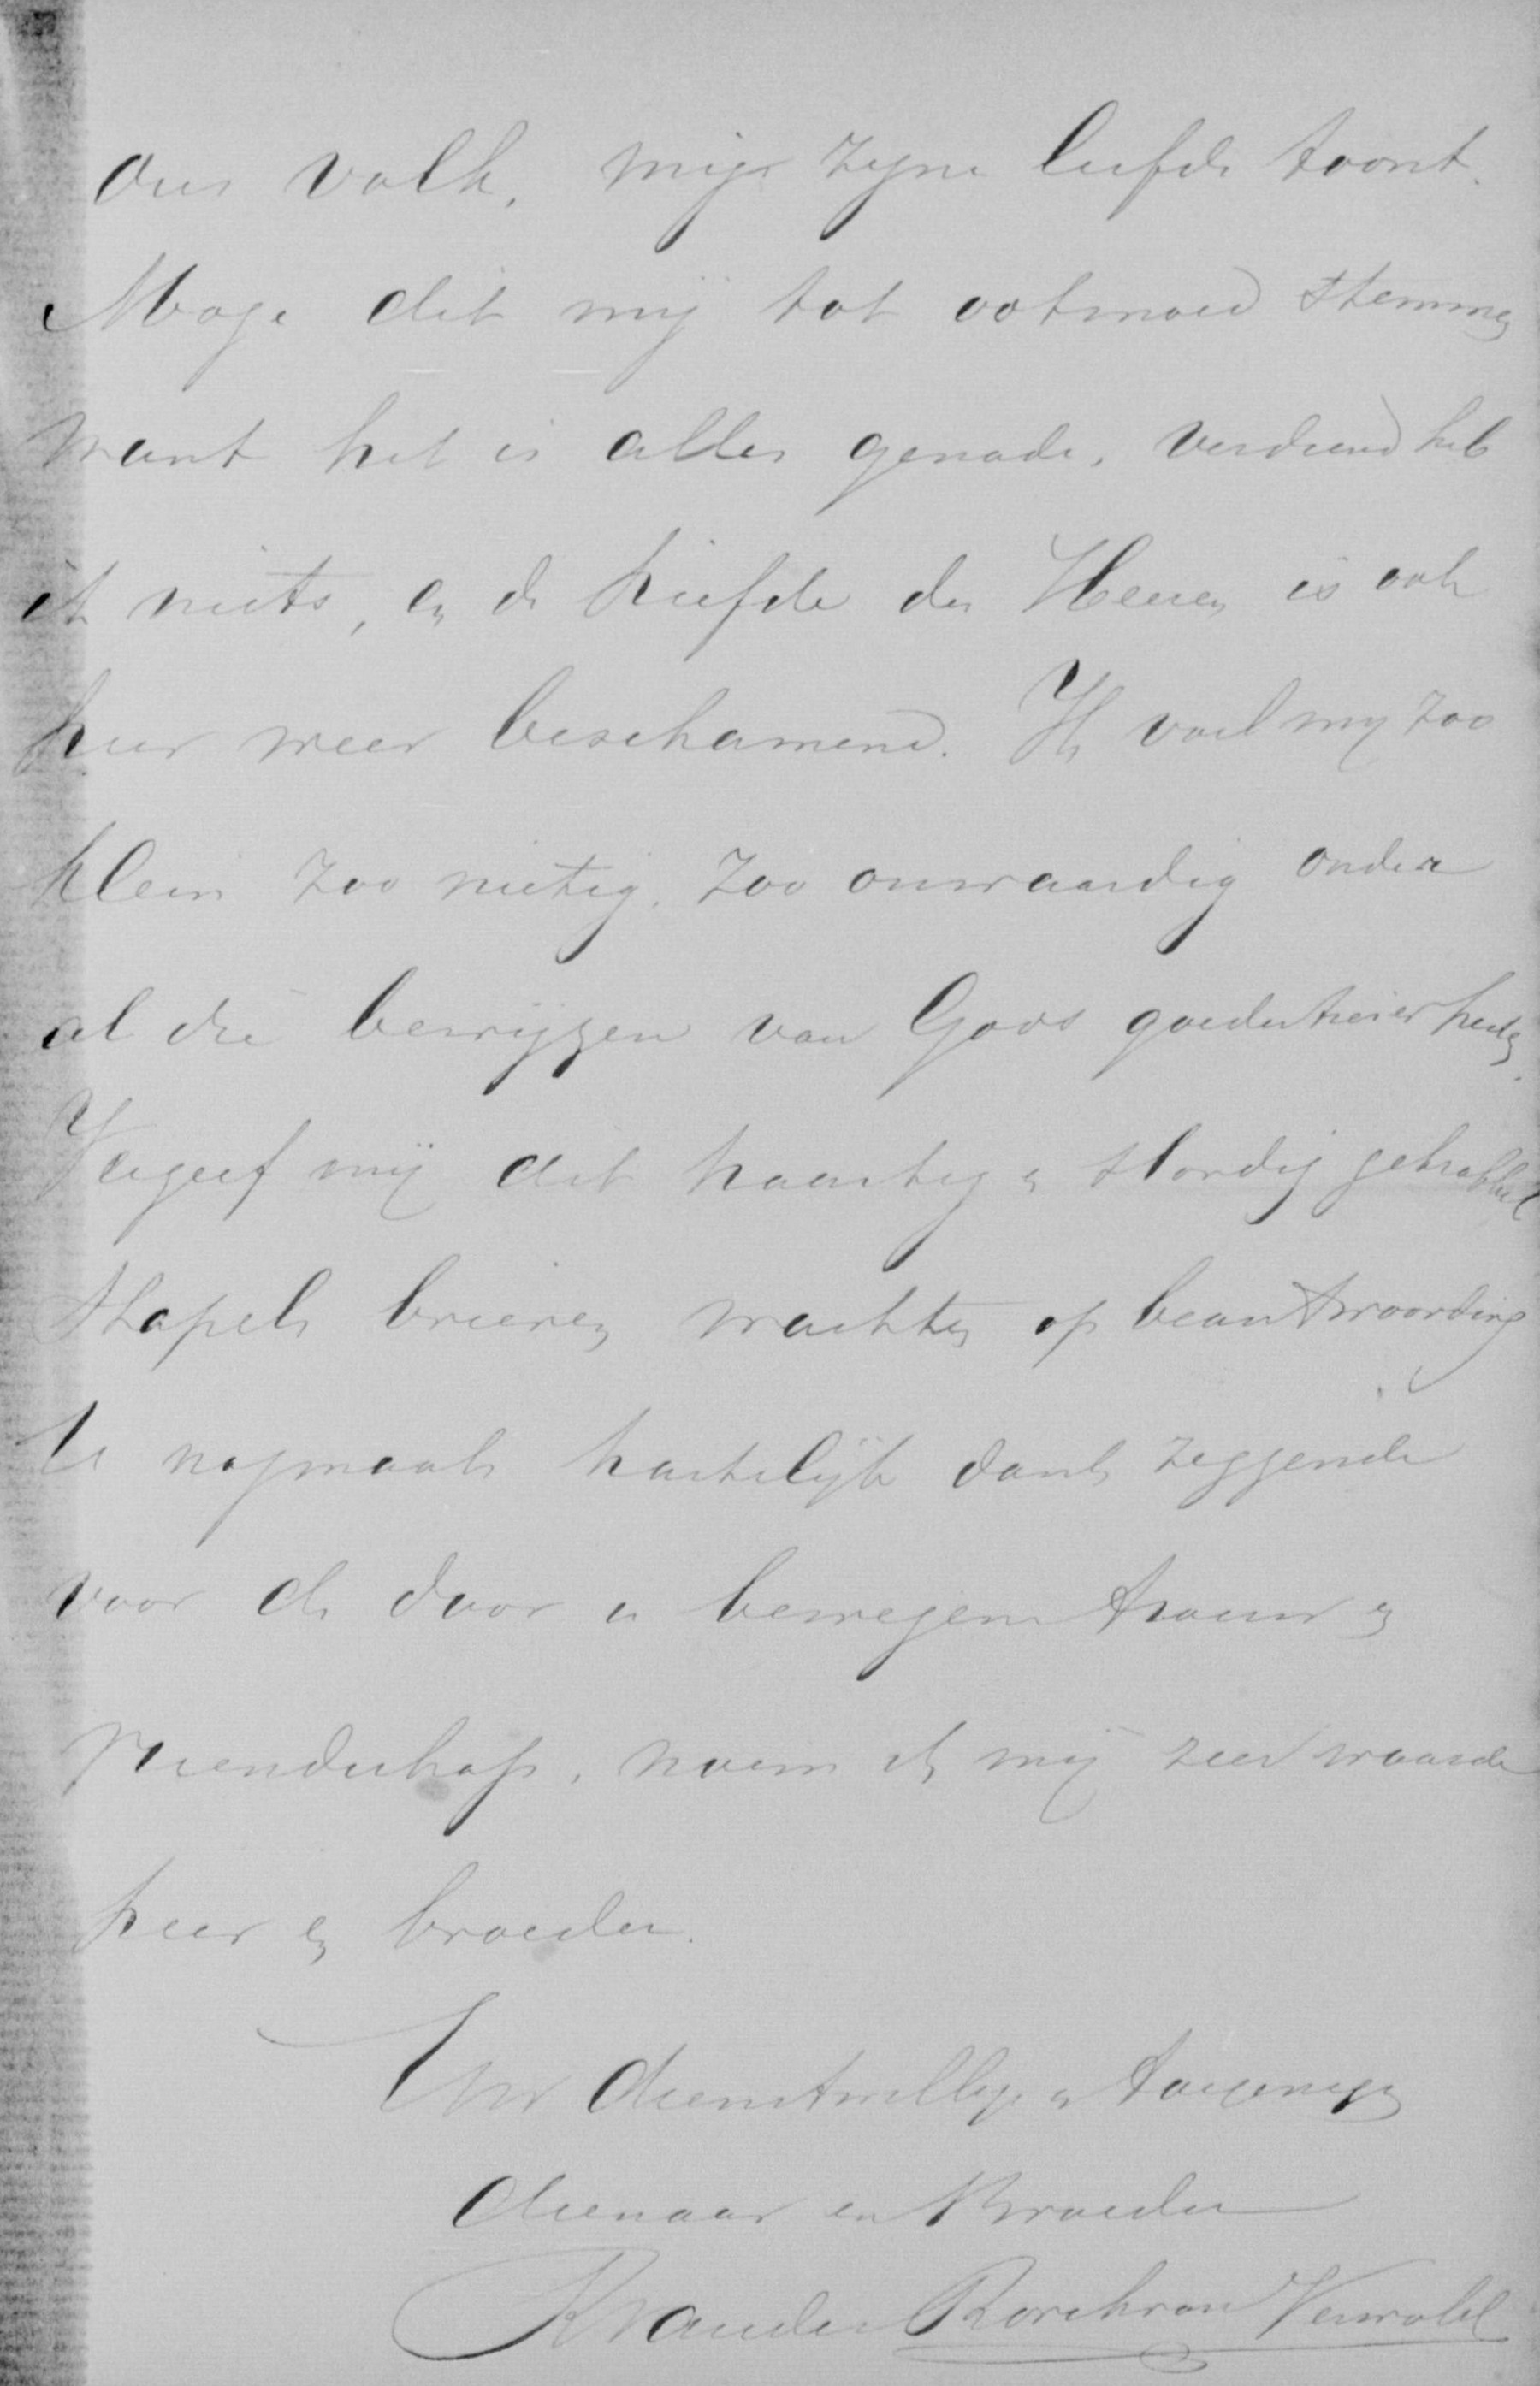 ons volk, mijn zijne liefde toont.
Moge dit mij tot ootmoed stemmen
want het is alles genade, verdiend heb
ik niets, en de liefde des Heeren is ook
hier weer beschamend. Ik voel mij zoo
klein zoo nietig, zoo onwaardig onder
al die bewijzen van Gods goedertierenheden.
Vergeef mij dit haastig en slordig gekrabbel
stapels brieven wachten op beantwoording
U nogmaals hartelijk dank zeggende
voor de door u bewezen trouw en
vriendschap, noem ik mij zeer waarde
heer en broeder.
Uw dienstwillige en toegenegen
dienaar en Broeder
R van der Borch van Verwolde